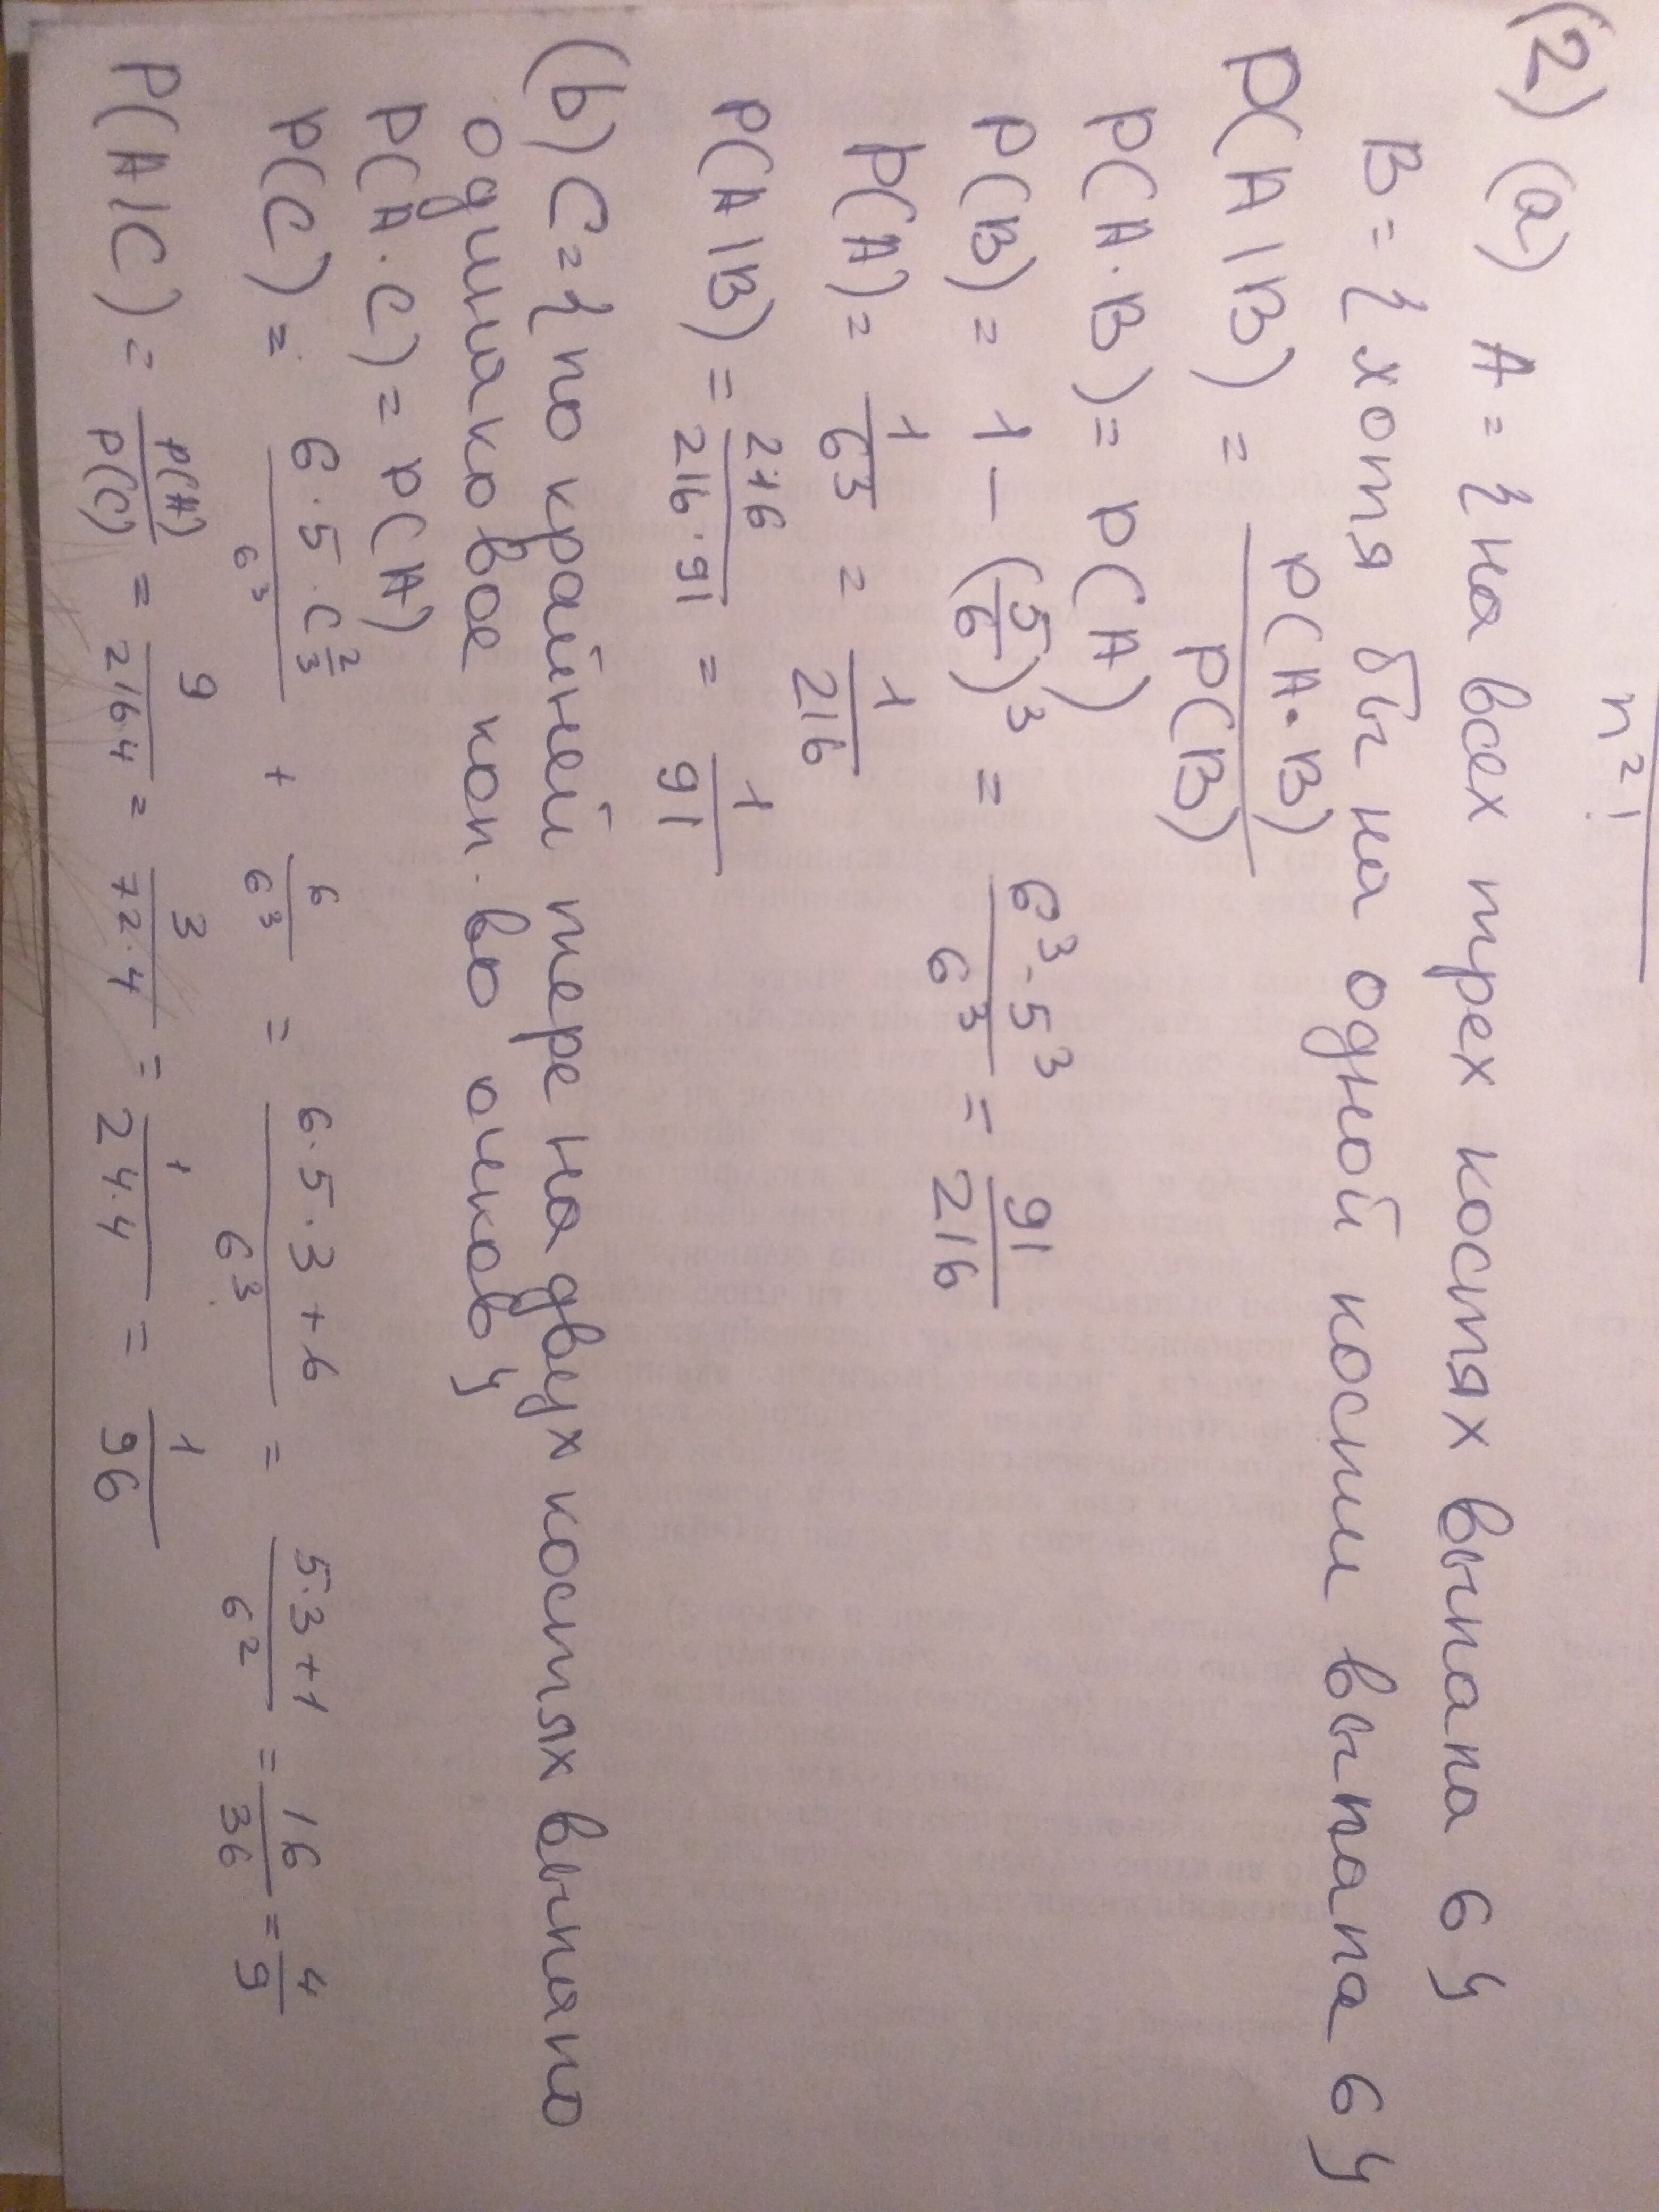 n²!
(2) (a) A = {на всех трех костях выпала 6}
B = {хотя бы на одной кости выпала 6}
P(A|B) = P(A·B) / P(B)
P(A·B) = P(A)
P(B) = 1 − (5/6)³ = (6³-5³)/6³ = 91/216
P(A) = 1/6³ = 1/216
P(A|B) = 216/(216·91) = 1/91
(b) C = {по крайней мере на двух костях выпало
одинаковое кол-во очков}
P(A·C) = P(A)
P(C) = (6·5·C²₃)/6³ + 6/6³ = (6·5·3+6)/6³ = (5·3+1)/6² = 16/36 = 4/9
P(A|C) = P(A)/P(C) = 9/(216·4) = 3/(72·4) = 1/(24·4) = 1/96